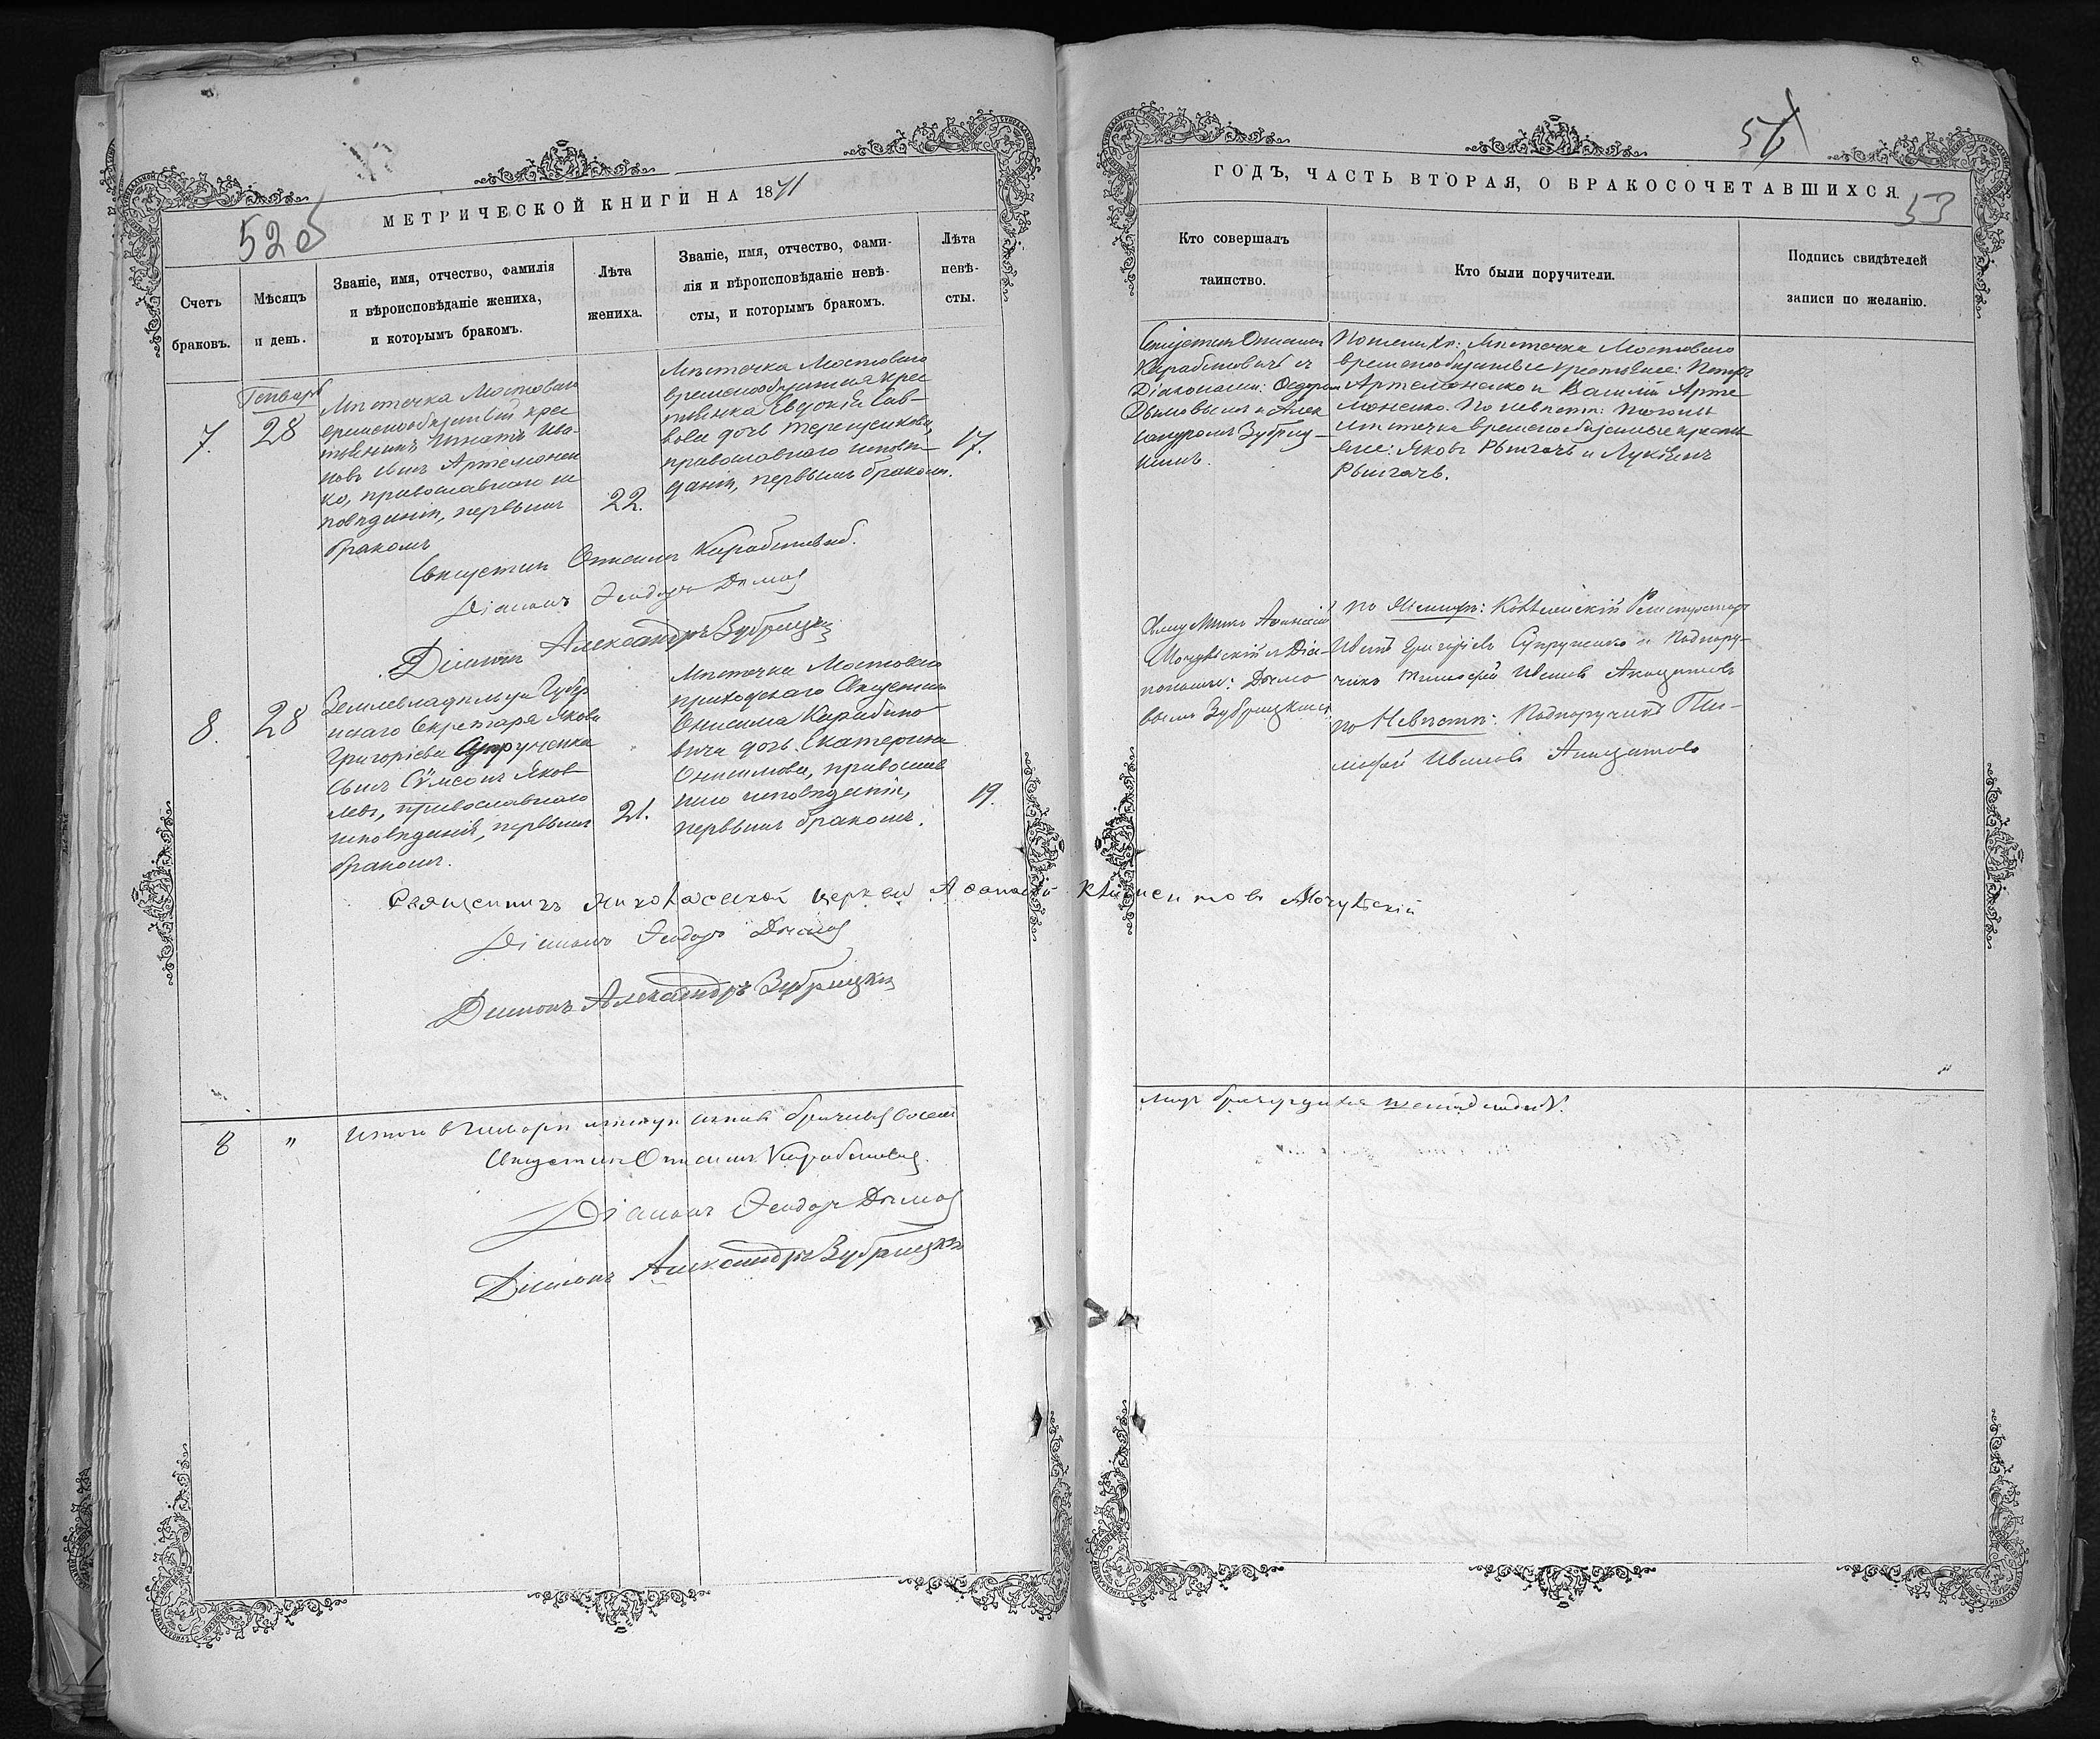 МЕТРИЧЕСКОЙ КНИГИ НА 1871
52 об
Счетъ браковъ.
Мѣсяцъ и день.
Званіе, имя, отчество, фамилія
и вѣроисповѣданіе жениха,
и которымъ бракомъ.
Лѣта жениха.
Званіе, имя, отчество, фами-
лія и вѣроисповѣданіе невѣ-
сты, и которымъ бракомъ.
Лѣта невѣ-
сты.
7.
Генварь
28
Мѣстечка Мостоваго
временнообязанный крес
тьянинъ Игнатъ Ива-
новъ сынъ Артемонен
ко, православнаго ис
повѣданія, первымъ
бракомъ
22.
Мѣстечка Мостоваго
временнообязанная крес
тьянка Евдокія Сав-
вова дочь Терещенкова,
православнаго исповѣ-
данія, первымъ бракомъ.
17.
Священникъ Онисимъ Карабиновичъ.
Діаконъ Ѳеодоръ Дымов
Діаконъ Александръ Зубрицкій
8.
28
Землевладѣльца Губер
нскаго Секретаря Якова
Григоріева Супруненка
сынъ Сѵмеонъ Яков
левъ, православнаго
исповѣданія, первымъ
бракомъ.
21.
Мѣстечка Мостоваго
приходскаго Священника
Онисима Карабино
вича дочь Екатерина
Онисимова, православ
наго исповѣданія,
первымъ бракомъ.
19.
Священникъ Николаевской церкви Аѳанасій Климентовъ Мочульскій
Діаконъ Ѳеодоръ Дымов
Діаконъ Александръ Зубрицкій
8
"
Итого в Генварѣ мѣсяцѣ браковъ восемь
Священникъ Онисимъ Карабиновичъ.
Діаконъ Ѳеодоръ Дымов
Діаконъ Александръ Зубрицкій
ГОДЪ, ЧАСТЬ ВТОРАЯ, О БРАКОСОЧЕТАВШИХСЯ.
53
Кто совершалъ
таинство.
Кто были поручители.
Подпись свидѣтелей
записи по желанію.
Священникъ Онисимъ
Карабиновичъ съ
Діаконами: Ѳедоромъ
Дымовымъ и Алек
сандромъ Зубриц-
кимъ.
По женихѣ: Мѣстечка Мостоваго
временнообязанные крестьяне: Петръ
Артемоненко и Василій Арте
моненко. По невѣстѣ: того же
мѣстечка временнообязанные кресть
яне: Яковъ Рыжач и Лукіянъ
Рыжачь.
Аѳанасій
Мочульскій съ Діа-
конами: Дымо
вымъ Зубрицкимъ
по Женихѣ: Коллежскій Регистраторъ
Иванъ Григорьевъ Супруненко и Подпору-
чикъ Тимофей Ивановъ
по Невѣстѣ: Подпоручикъ Ти-
мофей Ивановъ